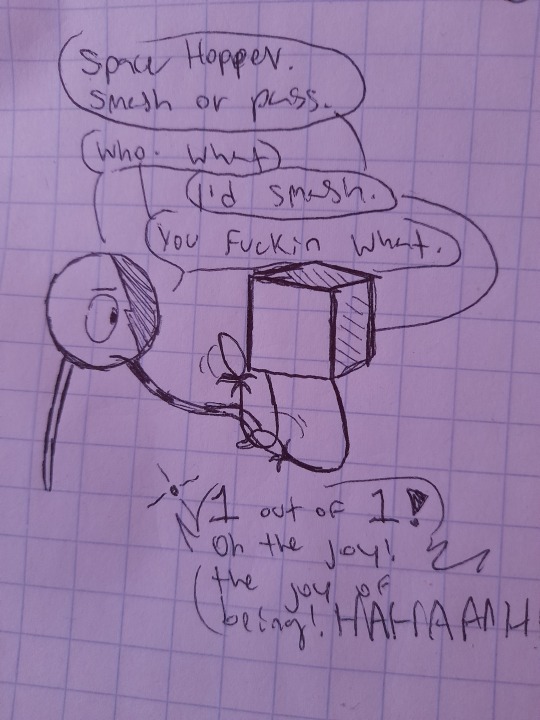 Space Hopper.
Smash or pass.
Who. What
I'd smash.
You Fuckin What.
1 out of 1!
Oh the joy!
the joy of
being! HAHAAAH